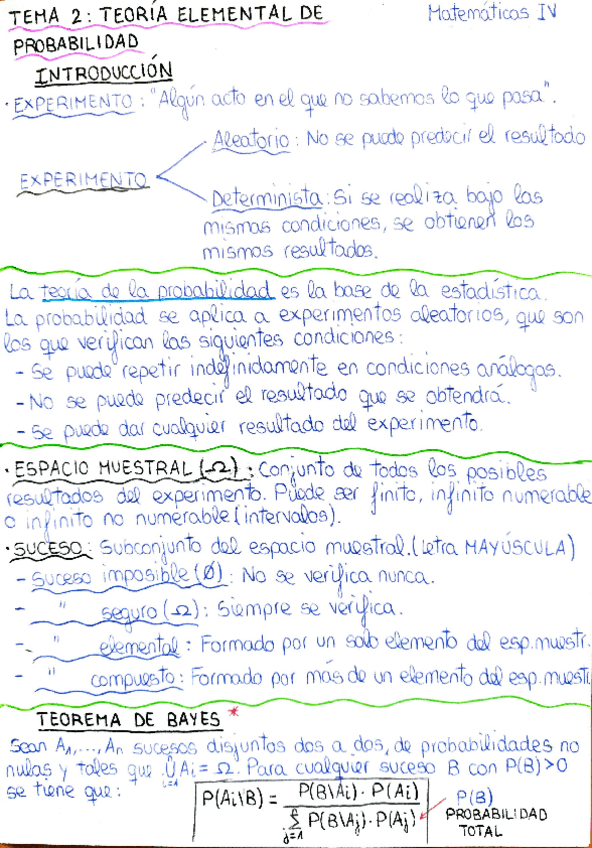 TEMA 2: TEORÍA ELEMENTAL DE
PROBABILIDAD
Matemáticas IV
INTRODUCCIÓN
· EXPERIMENTO: "Algún acto en el que no sabemos lo que pasa".
EXPERIMENTO
Aleatorio: No se puede predecir el resultado
Determinista: Si se realiza bajo las
mismas condiciones, se obtienen los
mismos resultados.
La teoría de la probabilidad es la base de la estadística.
La probabilidad se aplica a experimentos aleatorios, que son
los que verifican las siguientes condiciones:
- Se puede repetir indefinidamente en condiciones análogas.
- No se puede predecir el resultado que se obtendrá.
- Se puede dar cualquier resultado del experimento.
· ESPACIO MUESTRAL (Ω): Conjunto de todos los posibles
resultados del experimento. Puede ser finito, infinito numerable
o infinito no numerable (intervalos).
· SUCESO: Subconjunto del espacio muestral. (Letra MAYÚSCULA)
- Suceso imposible (Ø): No se verifica nunca.
- " seguro (Ω): Siempre se verifica.
- " elemental: Formado por un solo elemento del esp. muestr.
- " compuesto: Formado por más de un elemento del esp. muestr
TEOREMA DE BAYES *
Sean A₁,..., Aₙ sucesos disjuntos dos a dos, de probabilidades no
nulas y tales que ⋃ⁿᵢ₌₁ Aᵢ = Ω. Para cualquier suceso B con P(B)>0
se tiene que:
P(Ai\B) = P(B\Ai) · P(Ai) / Σⁿⱼ₌₁ P(B\Aj) · P(Aj)
P(B)
PROBABILIDAD
TOTAL